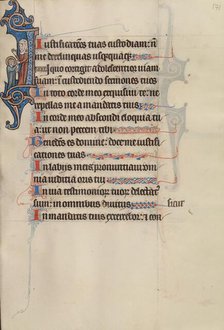 Iustificatiōes tuas custodiam: ñ
me derelinquas usq̄quaq̄
In quo corrigit adolescentior uiam
suam: in custodiendo sermones tuos
In toto corde meo exquisiui te: ne
repellas me a mandatis tuis
In corde meo abscondi eloquia
tua: ut non peccem tibi
Benedictus es domine: doce me iustifi
cationes tuas
In labiis meis pronuntiaui om
nia iuditia oris tui
In uia testimonior tuor delectat
sum: in omnibus diuitiis sicut
In mandatis tuis exercebor: ⁊ con